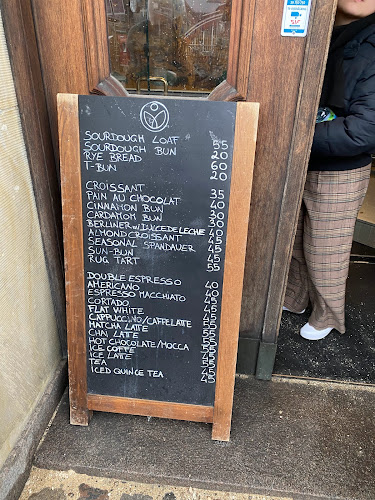 SOURDOUGH LOAF 55
SOURDOUGH BUN 20
RYE BREAD 60
T-BUN 20
CROISSANT 35
PAIN AU CHOCOLAT 40
CINNAMON BUN 30
CARDAMOM BUN 30
BERLINER W/DULCE DE LECHE 40
ALMOND CROISSANT 45
SEASONAL SPANDAUER 45
SUN-BUN 45
RUG TART 55
DOUBLE ESPRESSO 40
AMERICANO 40
ESPRESSO MACCHIATO 40
CORTADO 45
FLAT WHITE 45
CAPPUCCINO/CAFFELATE 55
MATCHA LATTE 55
CHAI LATTE 55
HOT CHOCOLATE/MOCCA 55
ICE COFFEE
ICE LATTE 55
TEA 45
ICED QUINCE TEA 45